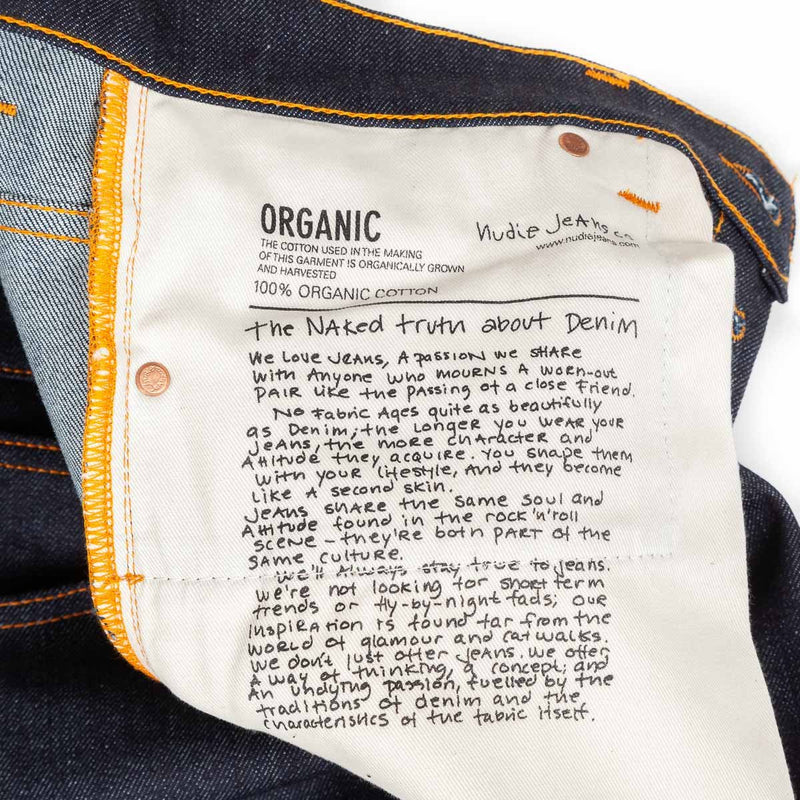 ORGANIC
THE COTTON USED IN THE MAKING
OF THIS GARMENT IS ORGANICALLY GROWN
AND HARVESTED
100% ORGANIC COTTON
Nudie Jeans co
www.nudiejeans.com
The NAKed truth about Denim
We Love JEANS, A pAssiON we SHARe
With Anyone who mourns A worn-out
PAIR like the Passing of a close Friend.
No Fabric Ages quite as beautifully
as Denim; the Longer you WEAR your
Jeans, the more character and
Attitude they acquire. You shape them
with your lifestyle, And they become
Like A second skin.
Jeans share the same soul and
Attitude found in the rock 'n' roll
scene – they're both PART of the
same culture.
We'll Always stay true to jeans.
We're not looking for short term
trends or fly-by-night fads; our
inspiration is found far from the
world of glamour and catwalks.
We don't just offer jeans. we offer
A way of thinking, a concept; and
An undying passion, fuelled by the
traditions of denim and the
characteristics of the fabric itself.